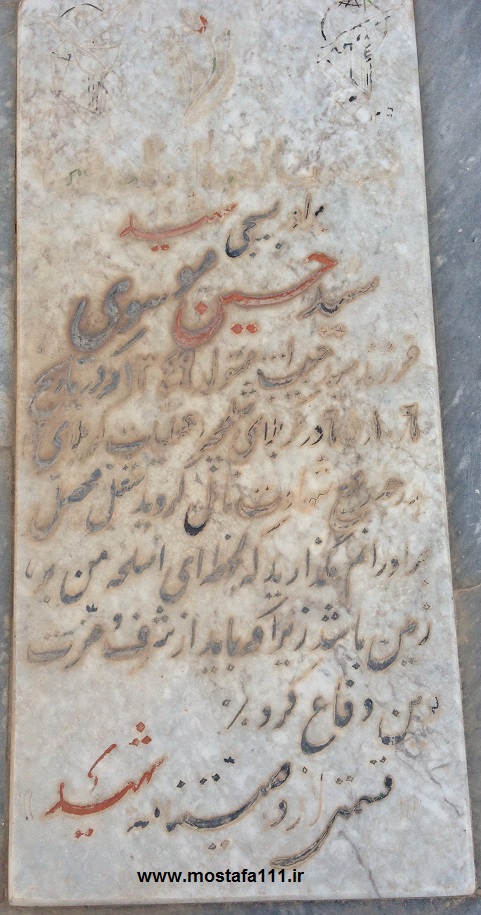 مزار بسیجی شهید
سید حسین موسوی
فرزند سید حبیب الله متولد که در تاریخ
در کربلای شلمچه عملیات کربلای
به درجه رفیع شهادت نائل گردید شغل محصل
برادرانم نگذارید که لحظه ای اسلحه من بر
زمین باشد زیرا که باید از شرف و عزت
دین دفاع کرد
قسمتی از وصیتنامه شهید
www.mostafa111.ir